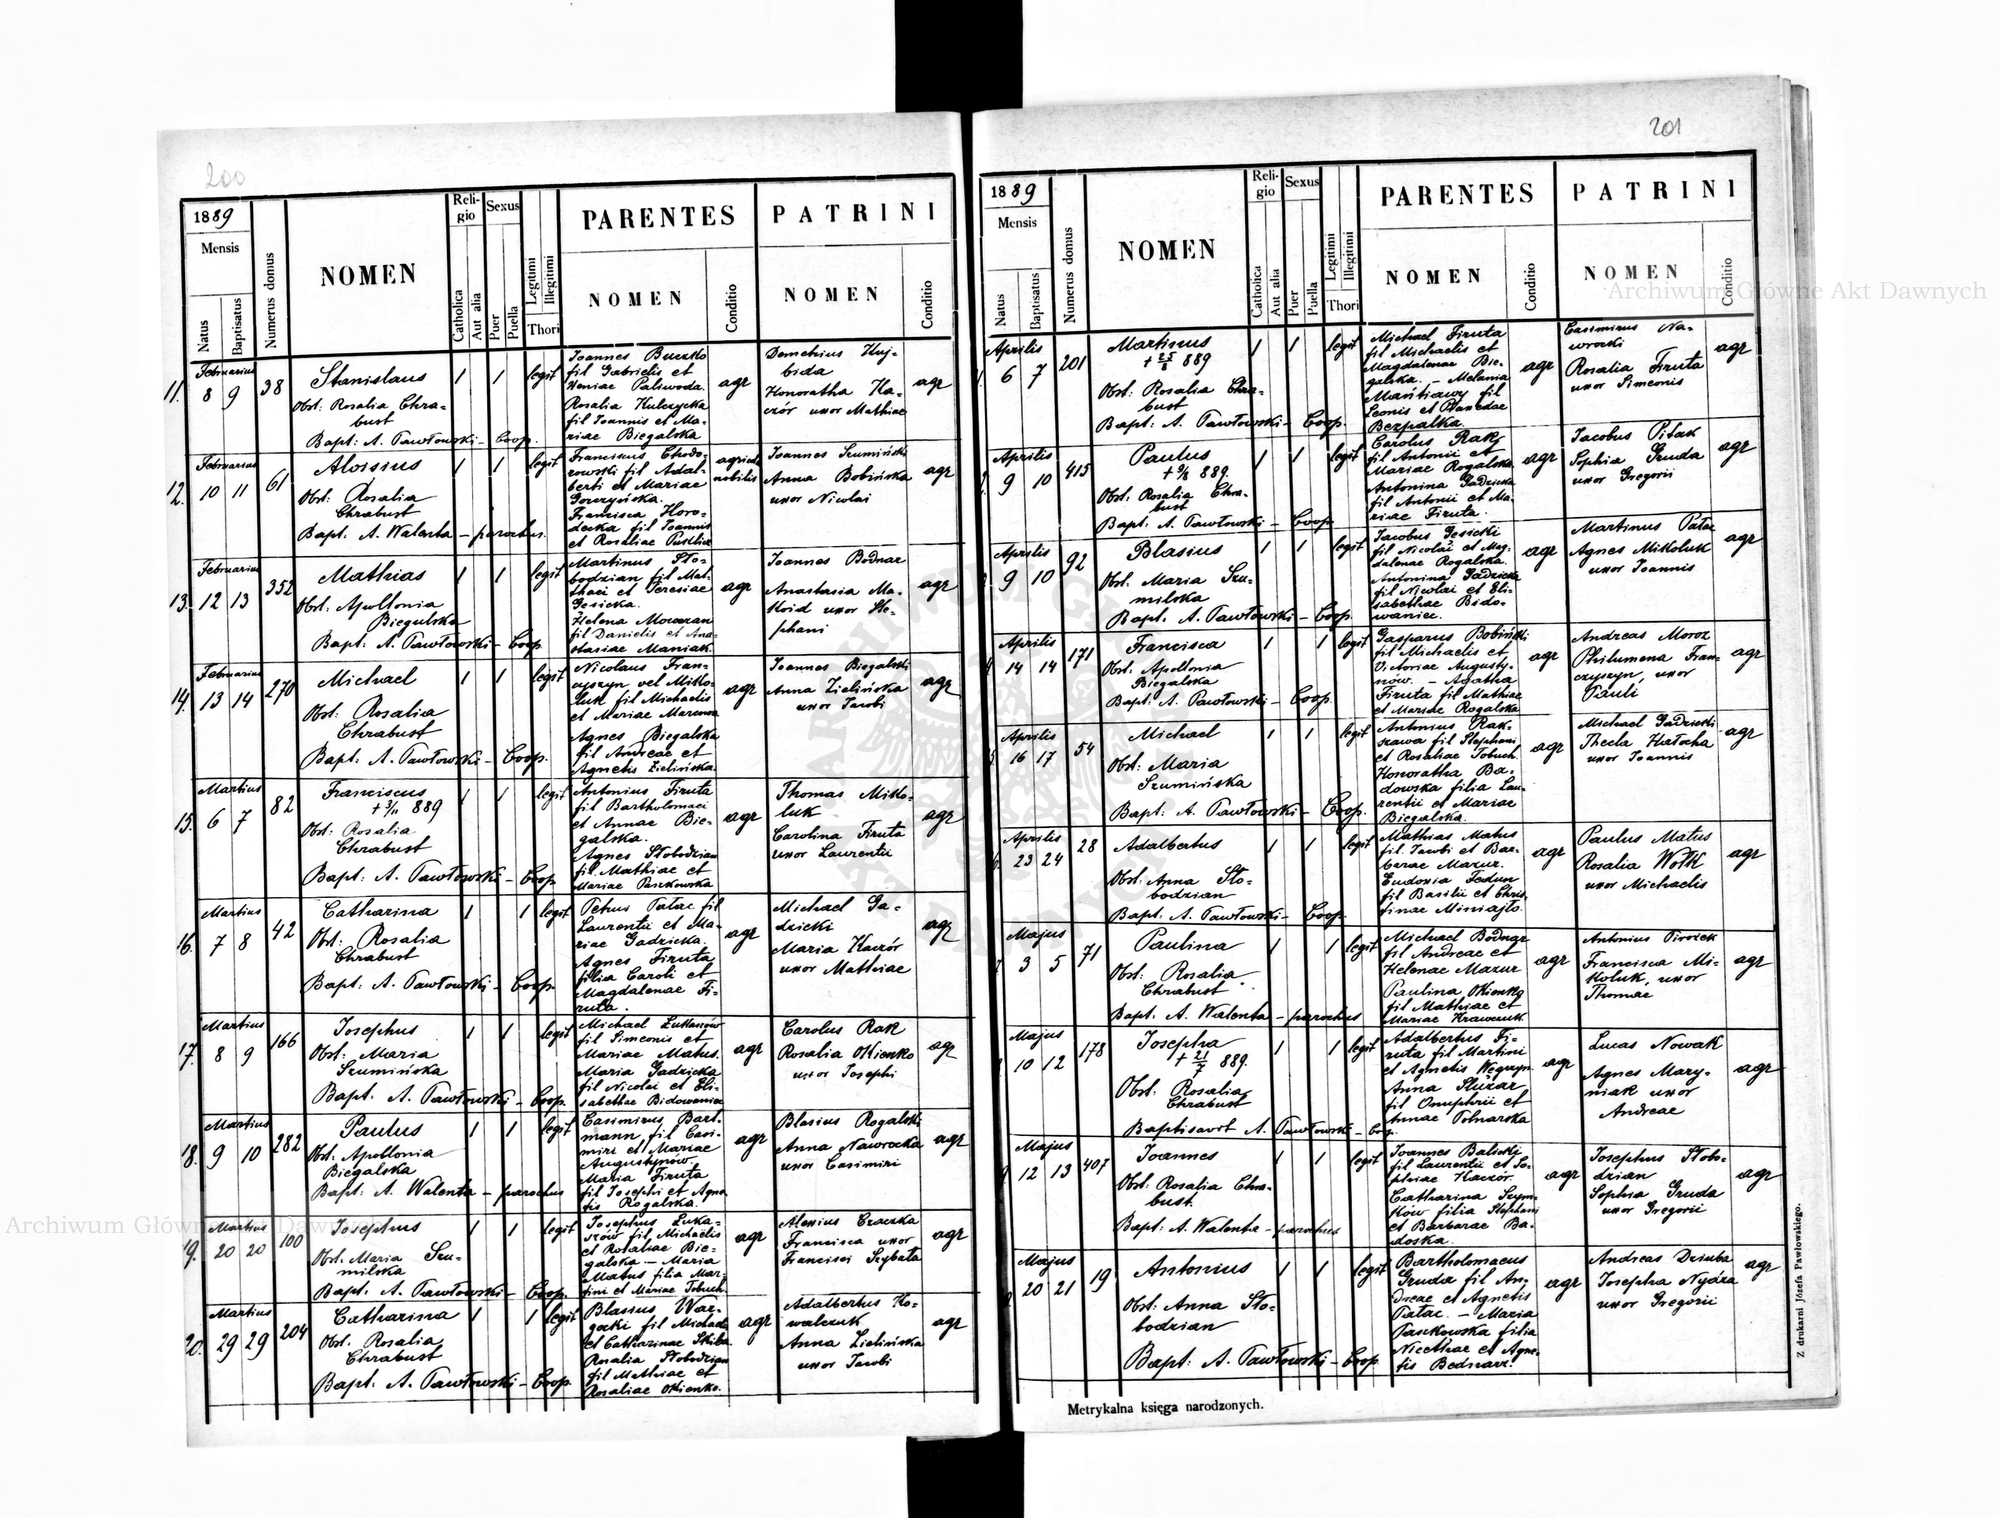 200
1889
Mensis
Natus
Baptisatus
Numerus domus
NOMEN
Reli-
gio
Catholica
Aut alia
Sexus
Puer
Puella
Legitimi
Illegitimi
Thori
PARENTES
NOMEN
Conditio
PATRINI
NOMEN
Conditio
11.
Februarius
8 9
38
Stanislaus
Obst: Rosalia Chra-
bust
Bapt: A. Pawłowski – Coop.
1 1 legit
Joannes Buczko
fil Gabrielis et
Xeniae Paliwoda.
Rosalia Kulczycka
fil Joannis et Ma-
riae Biegalska
agr
Demetrius Huj-
bida
Honoratha Ka-
czór uxor Mathiae
agr
12.
Februarius
10 11
61
Aloisius
Obst: Rosalia
Chrabust
Bapt: A. Walenta – parochus.
1 1 legit
Franciscus Chodo-
rowski fil Adal-
berti et Mariae
Gorczyńska.
Francisca Horo-
decka fil Joannis
et Rosaliae
agricola
nobilis
Joannes Szumiński
Anna Bobińska
uxor Nicolai
agr
13.
Februarius
12 13
352
Mathias
Obst: Apollonia
Biegalska
Bapt: A. Pawłowski – Coop.
1 1 legit
Martinus Sło-
bodzian fil Mat-
thaei et Teresiae
Gesicka.
Helena Moczran
fil Danielis et Ana-
stasiae Maniak.
agr
Joannes Bodnar
Anastasia Ma-
koid uxor Ste-
phani
agr
14.
Februarius
13 14
270
Michael
Obst: Rosalia
Chrabust
Bapt: A. Pawłowski – Coop.
1 1 legit
Nicolaus Fran-
czyszyn vel Miko-
łuk fil Michaelis
et Mariae
Agnes Biegalska
fil Andreae et
Agnetis Zielińska.
agr
Joannes Biegalski
Anna Zielińska
uxor Jacobi
agr
15.
Martius
6 7
82
Franciscus
+ 3/11 889
Obst: Rosalia
Chrabust
Bapt: A. Pawłowski – Coop
1 1 legit
Antonius Firuta
fil Bartholomaei
et Annae Bie-
galska.
Agnes Słobodzian
fil. Mathiae et
Mariae Paszkowska
agr
Thomas Miko-
luk
Carolina Firuta
uxor Laurentii
agr
16.
Martius
7 8
42
Catharina
Obst: Rosalia
Chrabust
Bapt: A. Pawłowski – Coop.
1 1 legit
Petrus Patac fil
Laurentii et Ma-
riae Gadzicka.
Agnes Firuta
filia Caroli et
Magdalenae Fi-
ruta.
agr
Michael Ga-
dzicki
Maria Kaczór
uxor Mathiae
agr
17.
Martius
8 9
166
Josephus
Obst: Maria
Szumińska
Bapt: A. Pawłowski – Coop.
1 1 legit
Michael Łukaszów
fil Simeonis et
Mariae Matus.
Maria Gadzicka
fil Nicolai et Eli-
sabethae Bidowaniec
agr
Carolus Rak
Rosalia Okienko
uxor Josephi
agr
18.
Martius
9 10
282
Paulus
Obst: Apollonia
Biegalska
Bapt: A. Walenta – parochus
1 1 legit
Casimirus Bart-
mann fil Casi-
miri et Mariae
Augustynów
Maria Firuta
fil Josephi et Agne-
tis Rogalska.
agr
Blasius Rogalski
Anna Nawrocka
uxor Casimiri
agr
19.
Martius
20 20
100
Josephus
Obst: Maria Szu-
milska
Bapt: A. Pawłowski – Coop.
1 1 legit
Josephus Łuka-
szów fil Michaelis
et Rosaliae Bie-
galska – Maria
Matus filia Mar-
tini et Mariae Tobuch.
agr
Alexius Czaczka
Francisca uxor
Francisci Szybata
agr
20.
Martius
29 29
204
Catharina
Obst: Rosalia
Chrabust
Bapt: A. Pawłowski – Coop.
1 1 legit
Blasius War-
gocki fil Michaelis
et Catharinae Skiba.
Rosalia Słobodzian
fil Mathiae et
Rosaliae Okienko.
agr
Adalbertus Ko-
walczuk
Anna Zielińska
uxor Jacobi
agr
201
1889
Mensis
Natus
Baptisatus
Numerus domus
NOMEN
Reli-
gio
Catholica
Aut alia
Sexus
Puer
Puella
Legitimi
Illegitimi
Thori
PARENTES
NOMEN
Conditio
PATRINI
NOMEN
Conditio
Aprilis
6 7
201
Martinus
+ 25/8 889
Obst: Rosalia Chra-
bust
Bapt: A. Pawłowski – Coop.
1 1 legit
Michael Firuta
fil Michaelis et
Magdalenae Bie-
galska. – Melania
fil
Leonis et
Bezpalka.
agr
Casimirus Na-
wrocki
Rosalia Firuta
uxor Simeonis
agr
Aprilis
9 10
415
Paulus
+ 9/8 889.
Obst: Rosalia Chra-
bust
Bapt: A. Pawłowski – Coop.
1 1 legit
Carolus Rak
fil Antonii et
Mariae Rogalska
Antonina Gadzicka
fil Antonii et Ma-
riae Firuta.
agr
Jacobus Pitak
Sophia Gruda
uxor Gregorii
agr
Aprilis
9 10
92
Blasius
Obst: Maria Szu-
milska
Bapt: A. Pawłowski – Coop.
1 1 legit
Jacobus Gesicki
fil Nicolai et Mag-
dalenae Rogalska.
Antonina Gadzicka
fil Nicolai et Eli-
sabethae Bido-
waniec.
agr
Martinus Patac
Agnes Mikoluk
uxor Joannis
agr
Aprilis
14 14
171
Francisca
Obst: Apollonia
Biegalska
Bapt: A. Pawłowski – Coop.
1 1 legit
Gasparus Bobiński
fil Michaelis et
Victoriae Augusty-
nów. – Agatha
Firuta fil Mathiae
et Mariae Rogalska
agr
Andreas Moroz
Philumena Fran-
czyszyn, uxor
Pauli
agr
Aprilis
16 17
54
Michael
Obst: Maria
Szumińska
Bapt: A. Pawłowski – Coop.
1 1 legit
Antonius Rak-
szawa fil Stephani
et Rosaliae Tobuch.
Honoratha Ba-
dowska filia Lau-
rentii et Mariae
Biegalska.
agr
Michael Gadzicki
Thecla Hałocha
uxor Joannis
agr
Aprilis
23 24
28
Adalbertus
Obst: Anna Sło-
bodzian
Bapt: A. Pawłowski – Coop.
1 1 legit
Mathias Matus
fil. Jacobi et Bar-
barae Mazur.
Eudoxia Fedun
fil Basilii et Chris-
tinae
agr
Paulus Matus
Rosalia Wołk
uxor Michaelis
agr
Majus
3 5
71
Paulina
Obst: Rosalia
Chrabust
Bapt: A. Walenta – parochus
1 1 legit
Michael Bodnar
fil Andreae et
Helenae Mazur
Paulina Okienko
fil Mathiae et
Mariae Krawczuk
agr
Antonius Pirożek
Francisca Mi-
koluk, uxor
Thomae
agr
Majus
10 12
178
Josepha
+ 21/7 889.
Obst: Rosalia
Chrabust
Baptisavit A. Pawłowski – Coop.
1 1 legit
Adalbertus Fi-
ruta fil Martini
et Agnetis Węgrzyn
Anna Służar
fil Onuphrii et
Annae Potnarska
agr
Lucas Nowak
Agnes Mary-
niak uxor
Andreae
agr
Majus
12 13
407
Joannes
Obst: Rosalia Chra-
bust.
Bapt: A. Walenta – parochus
1 1 legit
Joannes Balicki
fil Laurentii et So-
phiae Kaczór.
Catharina Szym-
ków filia Stephani
et Barbarae Ba-
doska.
agr
Josephus Słobo-
dzian
Sophia Gruda
uxor Gregorii
agr
Majus
20 21
19
Antonius
Obst: Anna Sło-
bodzian
Bapt: A. Pawłowski – Coop.
1 1 legit
Bartholomaeus
Gruda fil An-
dreae et Agnetis
Patac. – Maria
Paszkowska filia
Nicethae et Agne-
tis Bednarz.
agr
Andreas Dziuba
Josepha Nyóra
uxor Gregorii
agr
Metrykalna księga narodzonych.
Z drukarni Józefa Pawłowskiego.
Archiwum Główne Akt Dawnych
Archiwum Główne Akt Dawnych